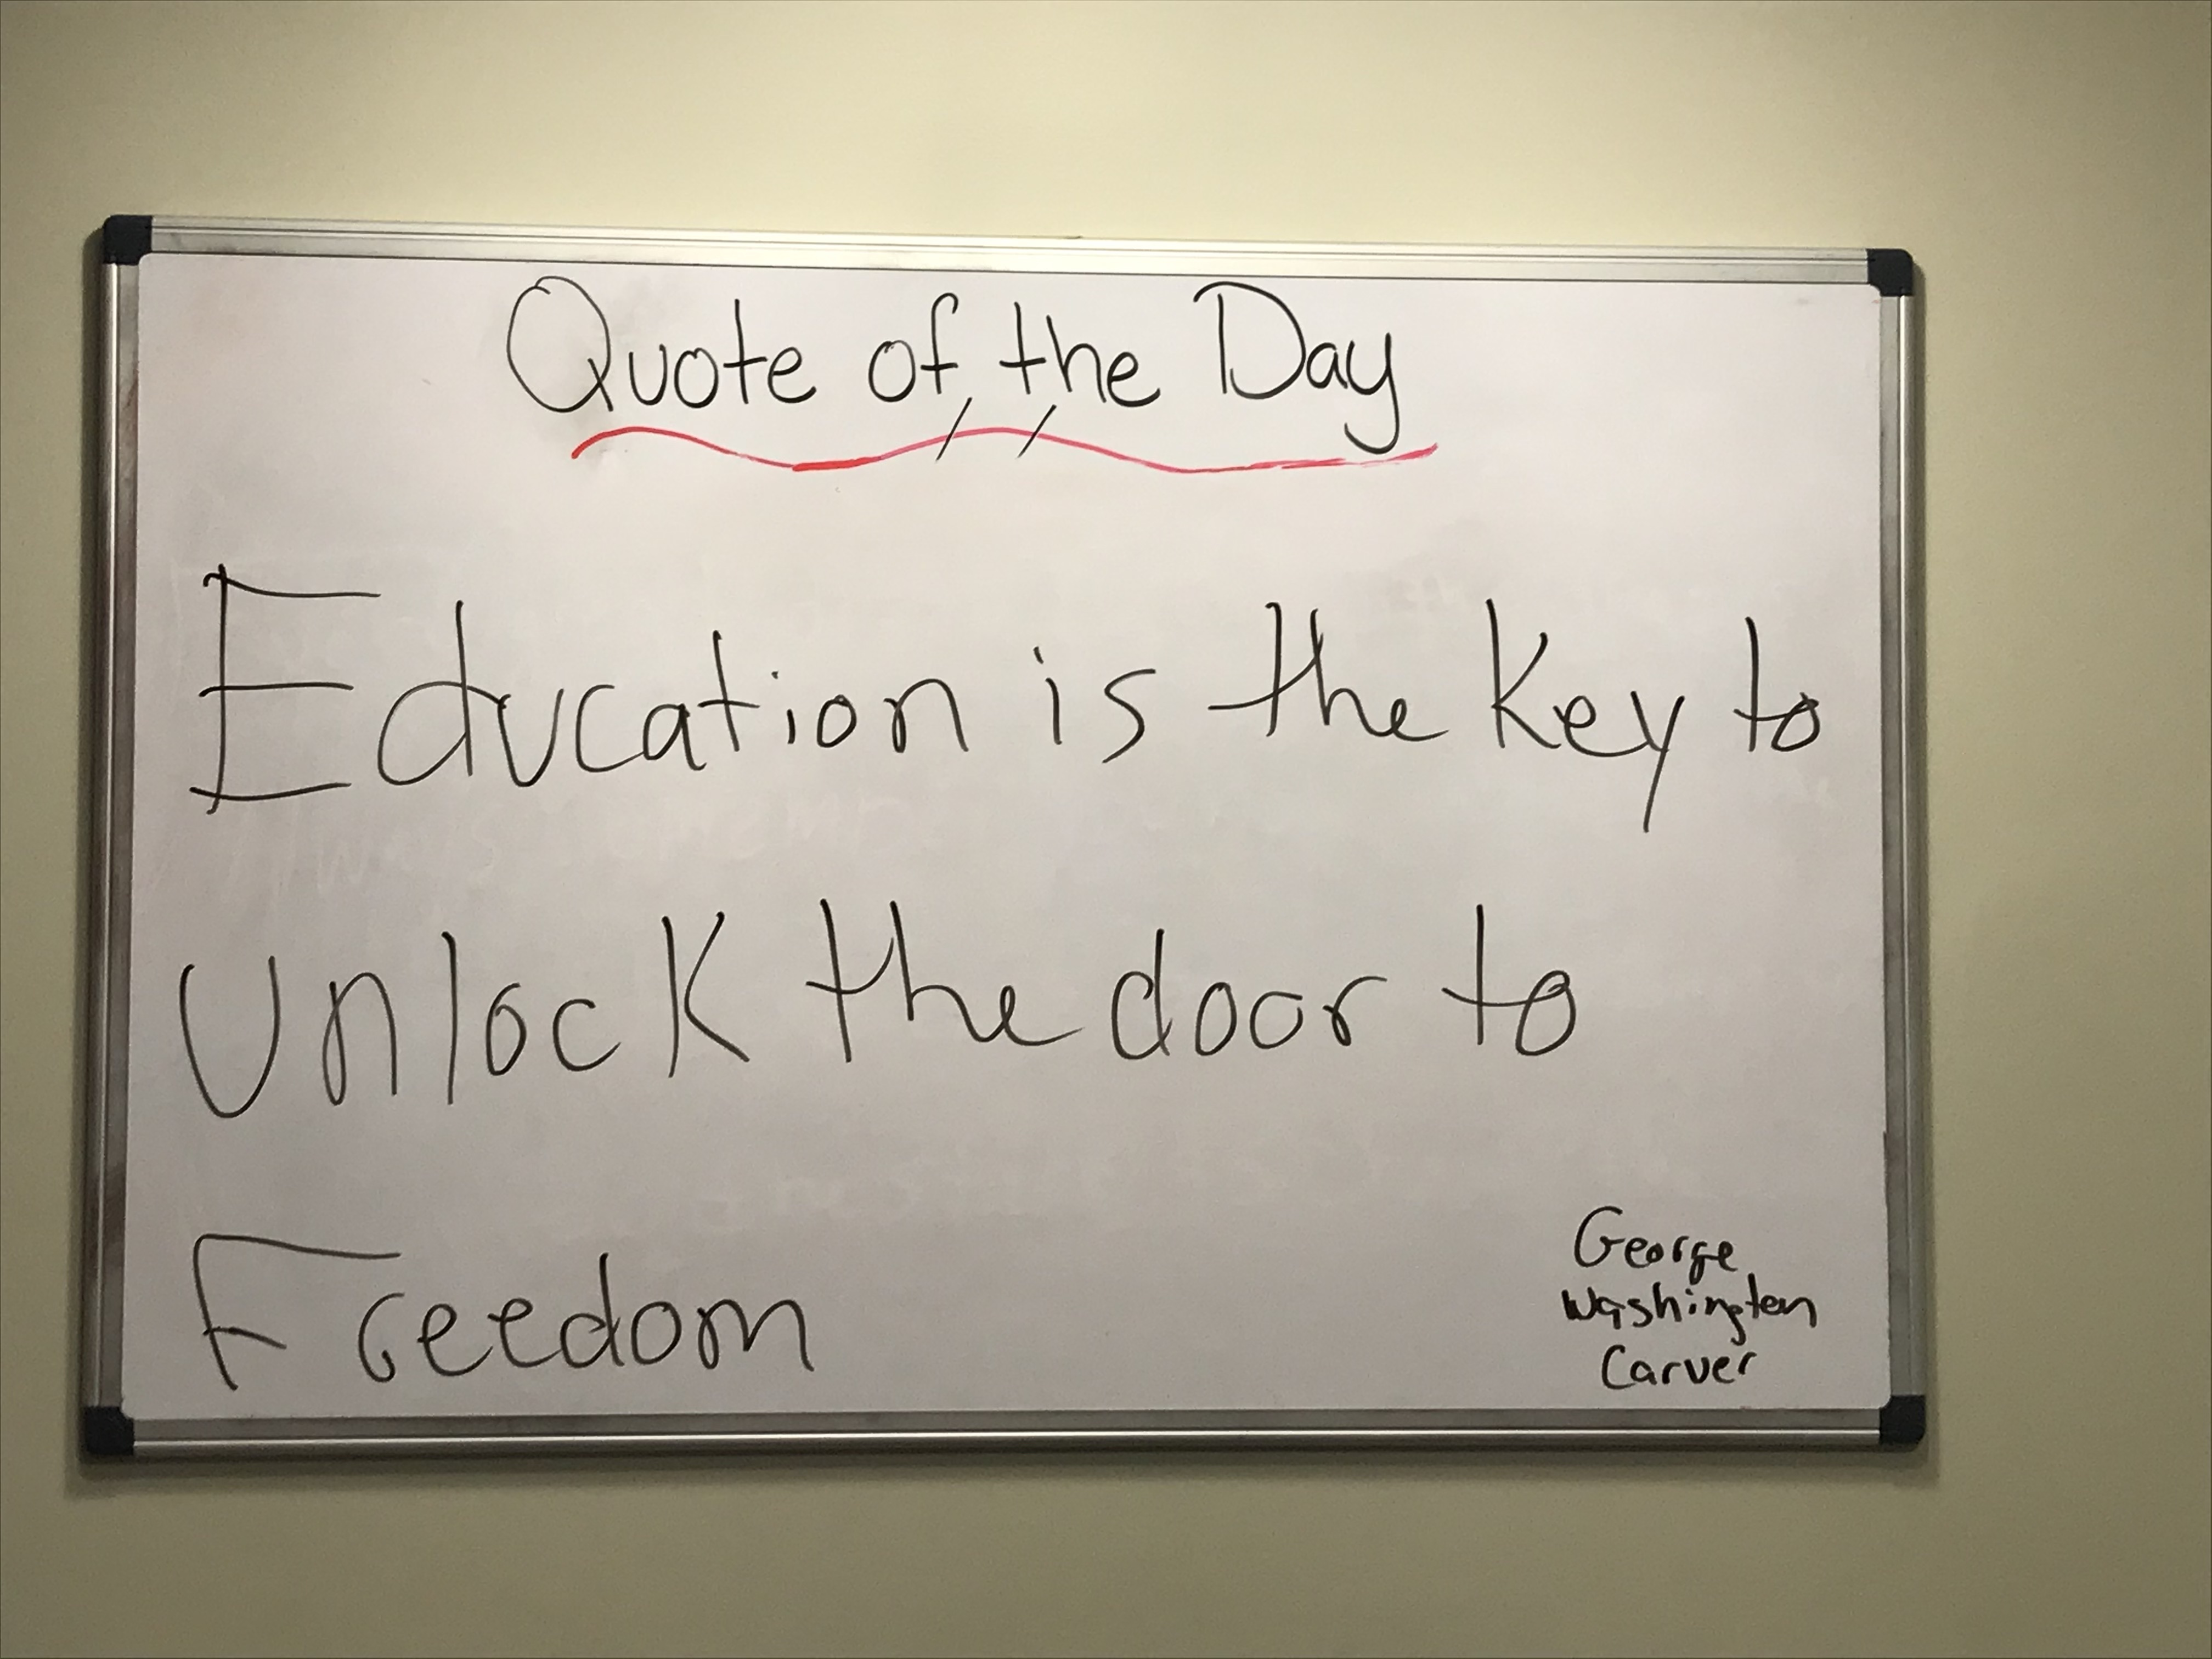 Quote of the Day
Education is the key to
Unlock the door to
Freedom
George
Washington
Carver